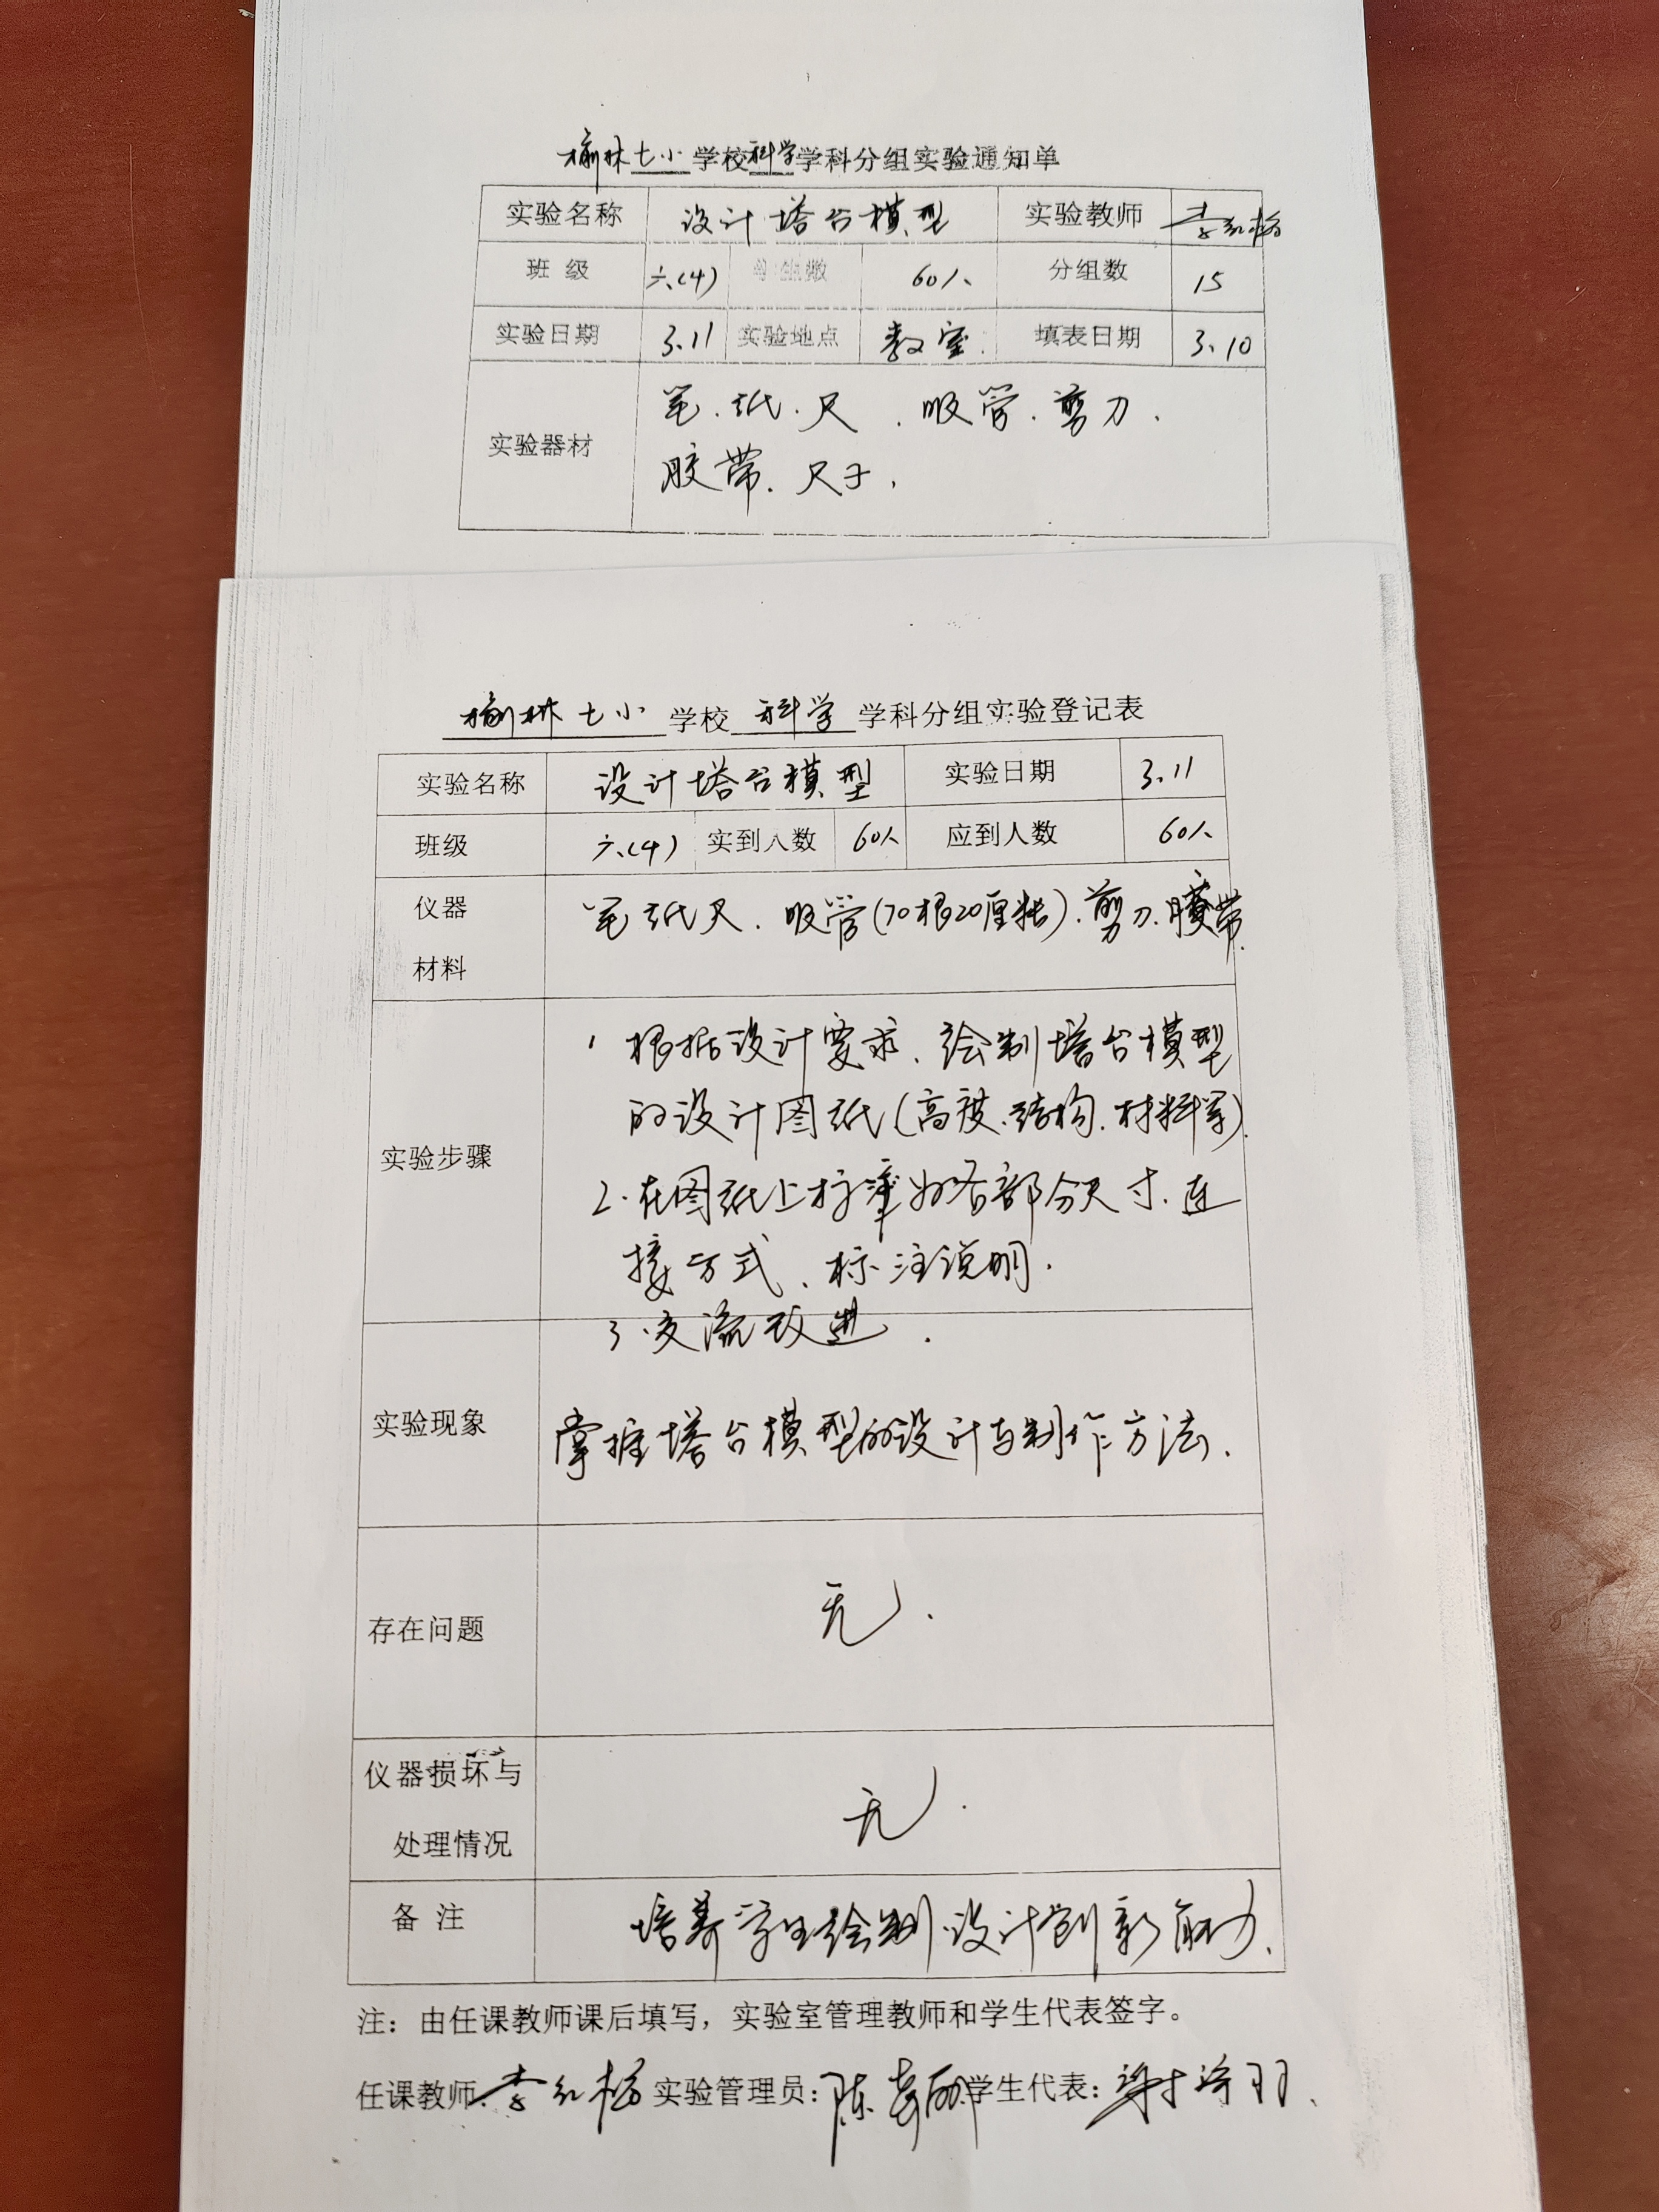 榆林七小学校科学学科分组实验通知单
实验名称 设计塔台模型 实验教师 李红梅
班 级 六(4) 学生数 60人 分组数 15
实验日期 3.11 实验地点 教室. 填表日期 3.10
实验器材
笔.纸.尺.吸管.剪刀.
胶带.尺子.
榆林七小 学校 科学 学科分组实验登记表
实验名称 设计塔台模型 实验日期 3.11
班级 六(4) 实到人数 60人 应到人数 60人
仪器
材料
笔纸尺.吸管(70根20厘米长).剪刀.胶带
实验步骤
1 根据设计要求、绘制塔台模型
的设计图纸(高度.结构.材料等).
2.在图纸上标各部分尺寸.连
接方式、标注说明.
3.交流改进.
实验现象
掌握塔台模型的设计与制作方法.
存在问题
无.
仪器损坏与
处理情况
无.
备 注
培养学生绘制设计创新能力.
注：由任课教师课后填写，实验室管理教师和学生代表签字。
任课教师 李红梅 实验管理员: 陈 学生代表: 谢 羽.